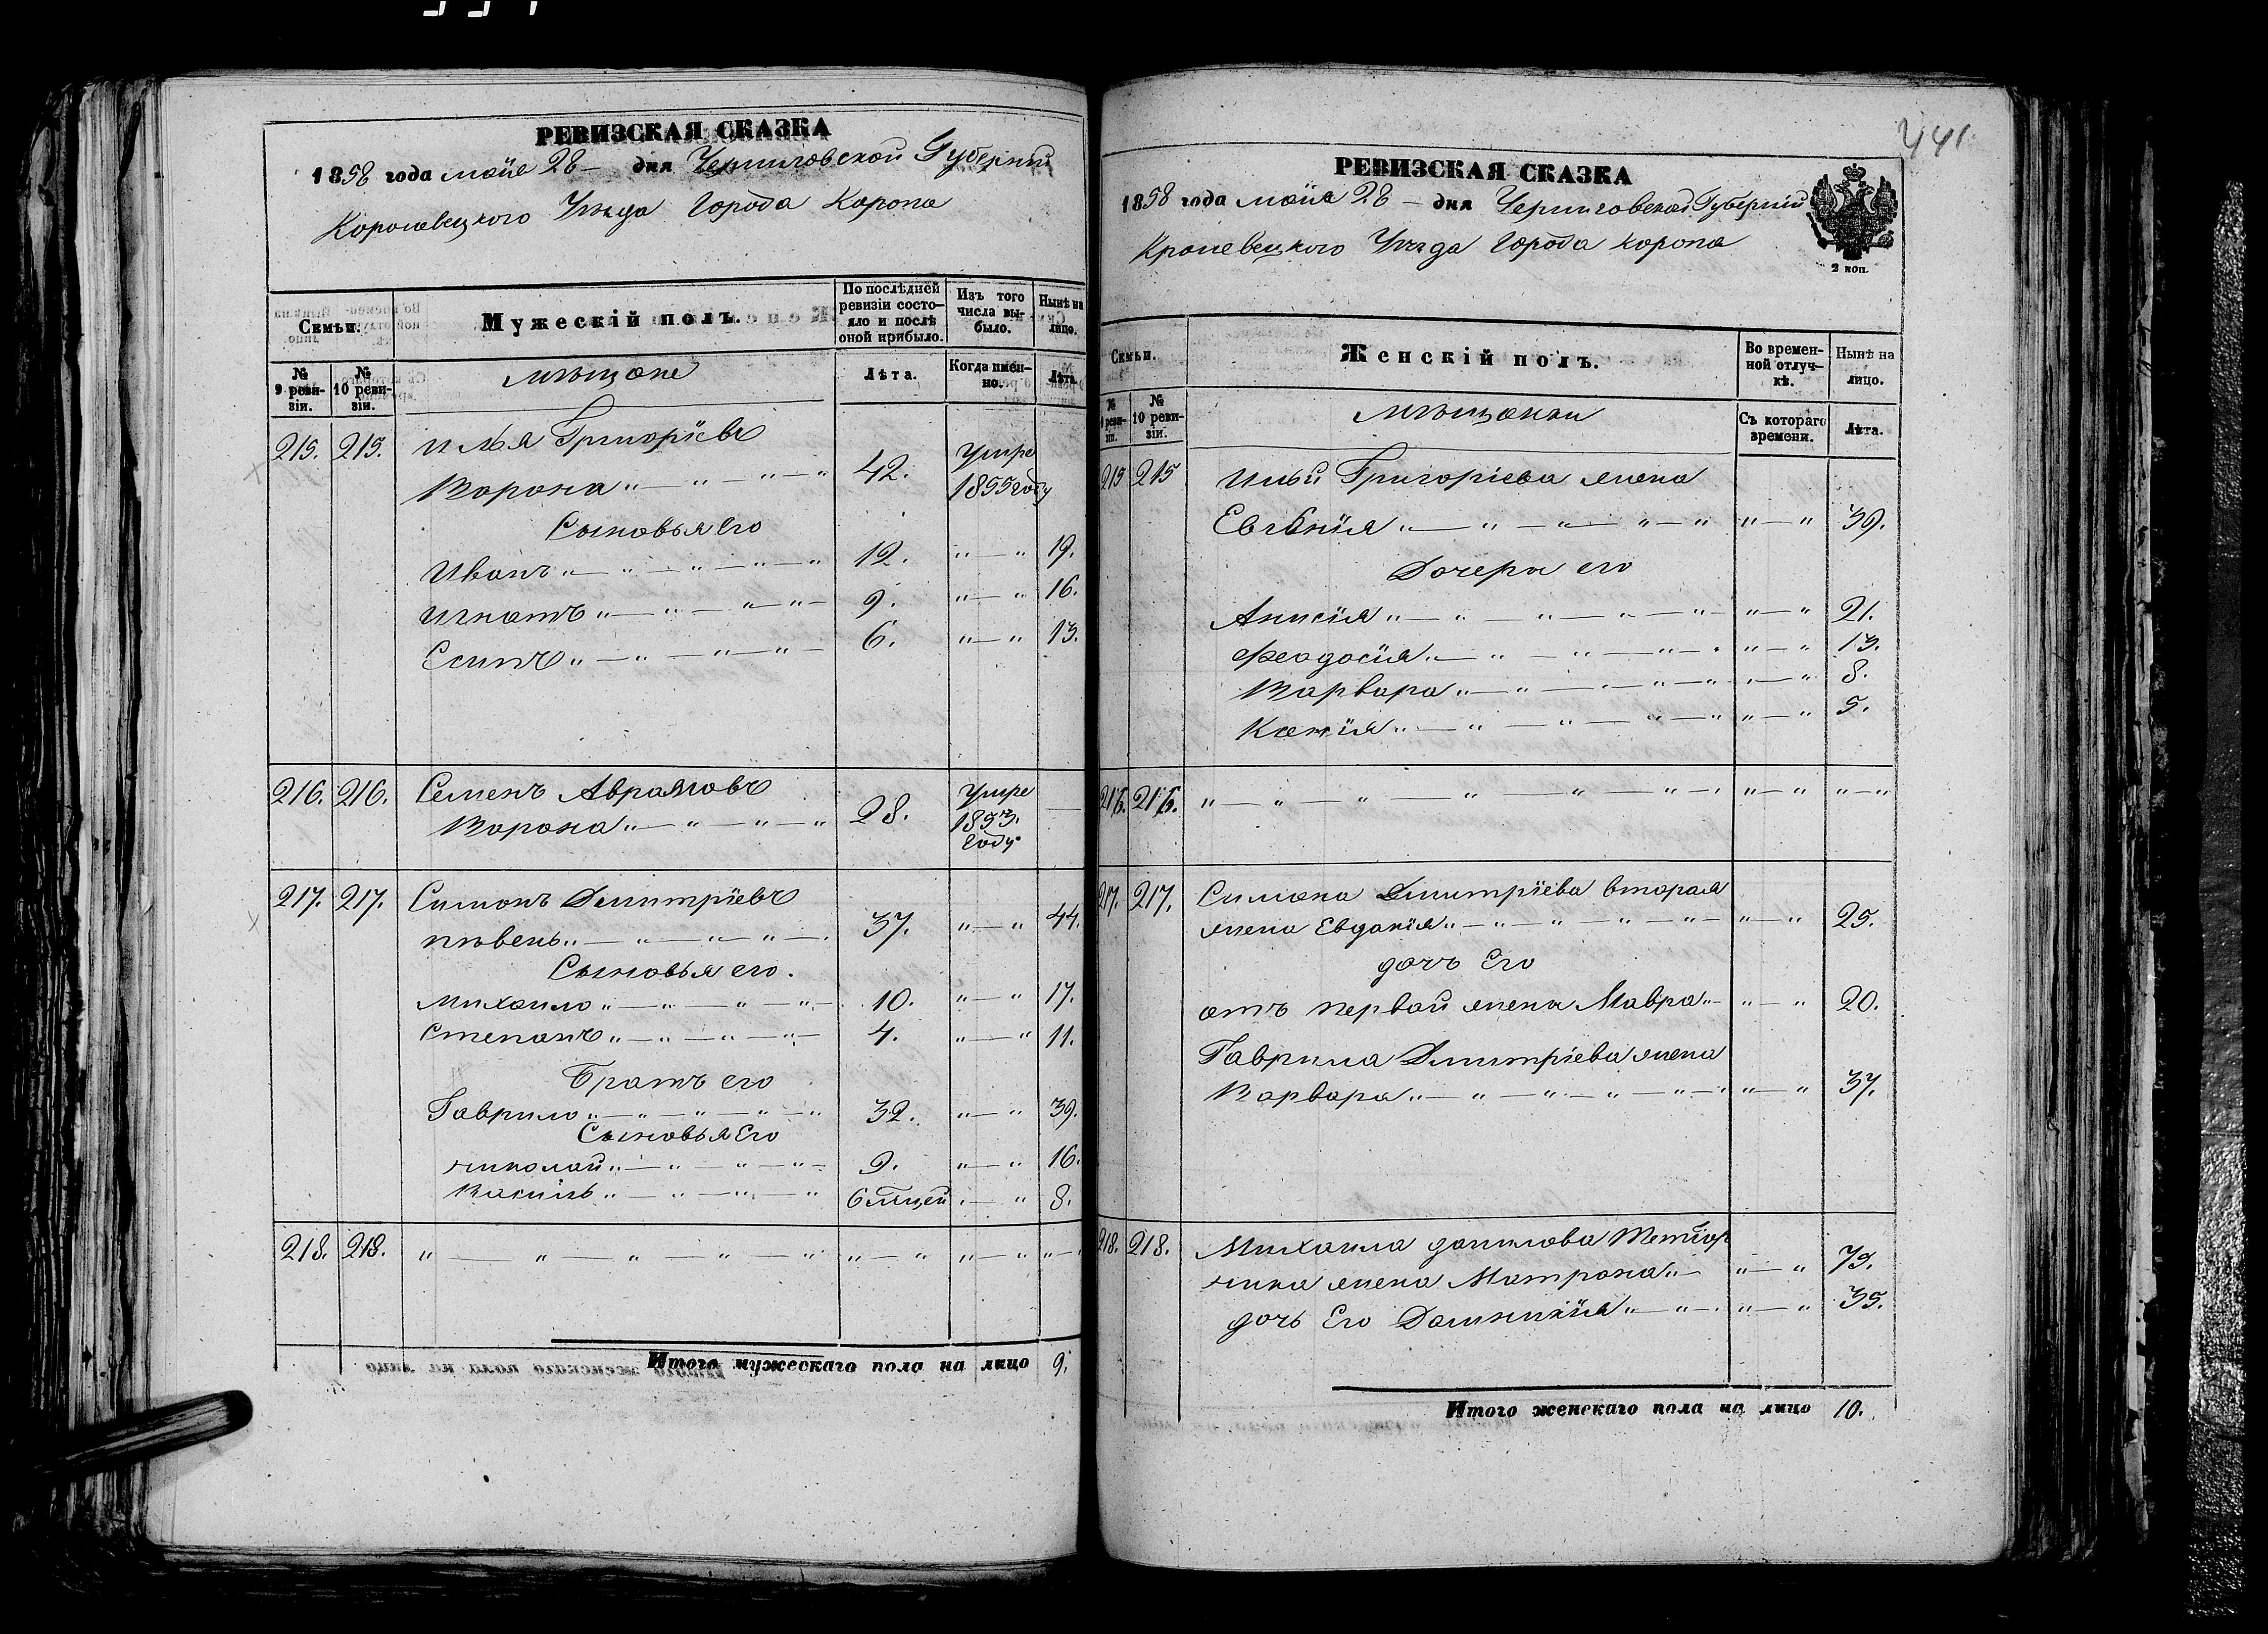 РЕВИЗСКАЯ СКАЗКА
1858 года маія 28 – дня Черниговской Губерніи
Королевецкого Уѣзда Города Коропа
Семьи.
Мужескій полъ.
По послѣдней ревизіи состояло и послѣ оной прибыло.
Изъ того числа выбыло.
Нынѣ на лицо.
№ 9 ревизіи.
№ 10 ревизіи.
Мѣщане
Лѣта.
Когда именно.
Лѣта.
215. 215. Илья Григоріевъ
Ворона 42. Умре 1855 году
Сыновья Его
Иванъ 12. 19.
Игнатъ 9. 16.
Есипъ 6. 13.
216. 216. Семенъ Аврамовъ
Ворона 28. Умре 1853. году
217. 217. Симонъ Дмитріевъ
Пѣвень 37. 44.
Сыновья его.
Михаило 10. 17.
Степанъ 4. 11.
Братъ его
Гаврило 32. 39.
Сыновья Его
Николай 9. 16.
Василь 6 мцей 8.
218. 218.
Итого мужескаго пола на лицо 9.
441
РЕВИЗСКАЯ СКАЗКА
1858 года маія 28 – дня Черниговской Губерніи
Кролевецкого Уѣзда Города Коропа
2 коп.
Семьи.
Женскій полъ.
Во временной отлучкѣ.
Нынѣ на лицо.
№ 9 ревизіи.
№ 10 ревизіи.
Мѣщанки
Съ котораго времени.
Лѣта.
215 215 Ильи Григоріева жена
Евгенія 39.
Дочери его
Анисія 21.
Феодосія 13.
Варвара 8.
Ксенія 5.
216. 216.
217. 217. Симона Дмитріева вторая
жена Евдокія 25.
дочь Его
отъ первой жены Мавра 20.
Гаврила Дмитріева жена
Варвара 37.
218. 218. Михаила Данилова
жена Матрона 79.
дочь Его Домникія 35.
Итого женскаго пола на лицо 10.